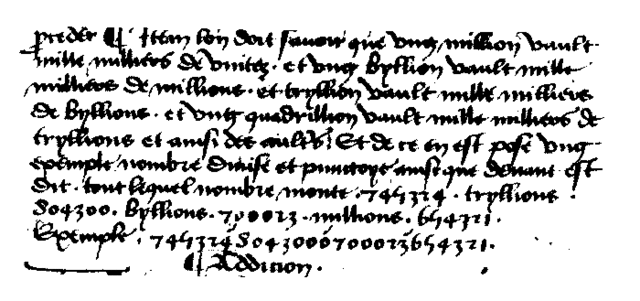 proceder ¶ Item lon doit savoir que ung million vault
mille milliers de unitez · et ung byllion vault mille
milliers de millions · et tryllion vault mille milliers
de byllions · et ung quadrillion vault mille milliers de
tryllions et ainsi des aultrs Et de ce en est pose ung
exemple nombre divise et punctoye ainsi que devant est
dit · tout lequel nombre monte · 745324 · tryllions ·
804300 · byllions · 700023 · millions · 654321 ·
Exemple · 745324'8043000'700023'654321 ·
¶ Addicion ·